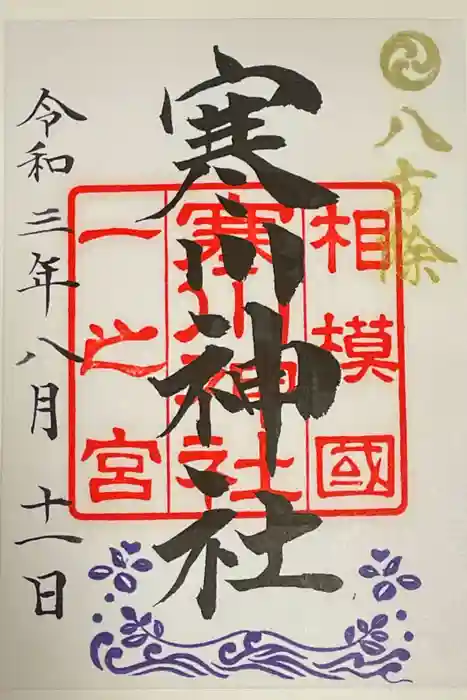 八方除
相模國
寒川神社
一之宮
寒川神社
令和三年八月十一日